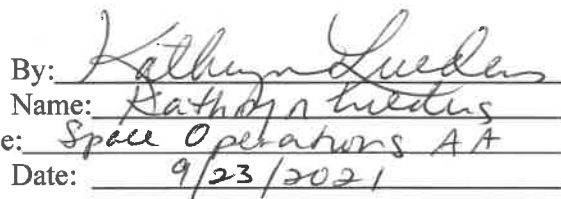 By: Kathryn Lueders
Name: Kathryn Lueders
e: Space Operations AA
Date: 9/23/2021